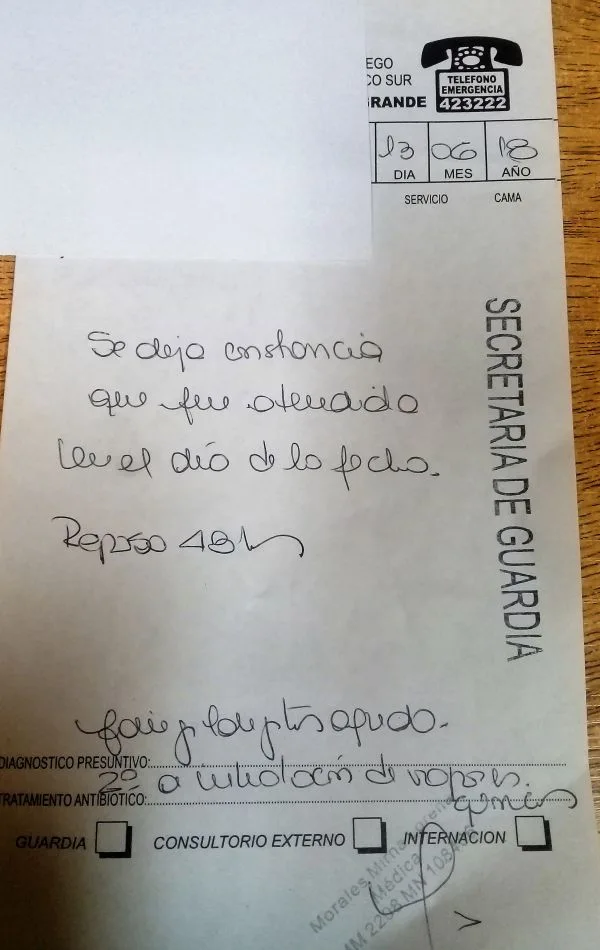 EGO
CO SUR
GRANDE
TELEFONO
EMERGENCIA
423222
13 06 18
DIA MES AÑO
SERVICIO CAMA
SECRETARIA DE GUARDIA
Se deja constancia
que fue atendido
en el día de la fecha.
Reposo 48 hs
aguda.
DIAGNOSTICO PRESUNTIVO:
2º a inhalación de vapores
TRATAMIENTO ANTIBIOTICO:
químicos
GUARDIA CONSULTORIO EXTERNO INTERNACION
Morales
Médica